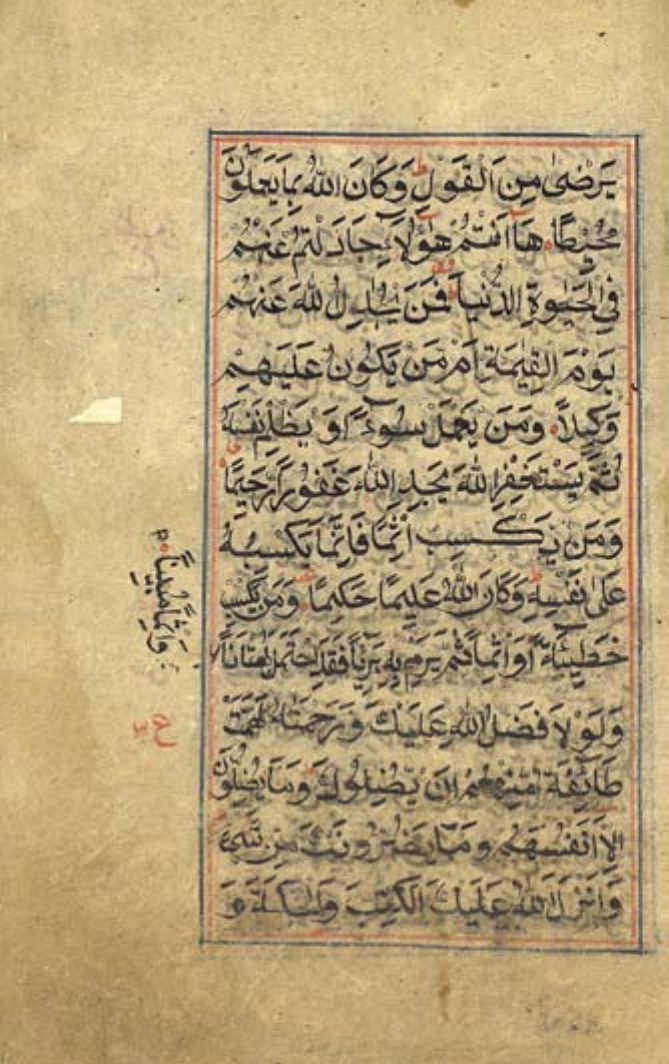 يَرْضَىٰ مِنَ الْقَوْلِ ط وَكَانَ اللّٰهُ بِمَا يَعْمَلُوْنَ
مُحِيْطًا هَا اَنْتُمْ هٰؤُلَاۤءِ جَادَلْتُمْ عَنْهُمْ
فِي الْحَيٰوةِ الدُّنْيَا فَمَنْ يُّجَادِلُ اللّٰهَ عَنْهُمْ
يَوْمَ الْقِيٰمَةِ اَمْ مَنْ يَكُوْنُ عَلَيْهِمْ
وَكِيْلًا وَمَنْ يَعْمَلْ سُوْءًا اَوْ يَظْلِمْ نَفْسَهُ
ثُمَّ يَسْتَغْفِرِ اللّٰهَ يَجِدِ اللّٰهَ غَفُوْرًا رَحِيْمًا
وَمَنْ يَكْسِبْ اِثْمًا فَاِنَّمَا يَكْسِبُهُ
عَلٰى نَفْسِهِ وَكَانَ اللّٰهُ عَلِيْمًا حَكِيْمًا وَمَنْ يَكْسِبْ
خَطِيْئَةً اَوْ اِثْمًا ثُمَّ يَرْمِ بِهِ بَرِيْئًا فَقَدِ احْتَمَلَ بُهْتَانًا
وَاِثْمًا مُبِيْنًا
وَلَوْلَا فَضْلُ اللّٰهِ عَلَيْكَ وَرَحْمَتُهُ لَهَمَّتْ
طَآئِفَةٌ مِنْهُمْ اَنْ يُضِلُّوْكَ وَمَا يُضِلُّوْنَ
اِلَّا اَنْفُسَهُمْ وَمَا يَضُرُّوْنَكَ مِنْ شَيْءٍ
وَاَنْزَلَ اللّٰهُ عَلَيْكَ الْكِتٰبَ وَالْحِكْمَةَ وَ